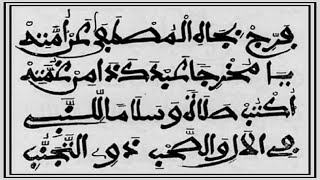 فرج بجاه المصطفى عن أمته
يا مخرجا من غمته
اكتب صلاة وسلاما للنبي
في الآل والصحب ذوي التجنب